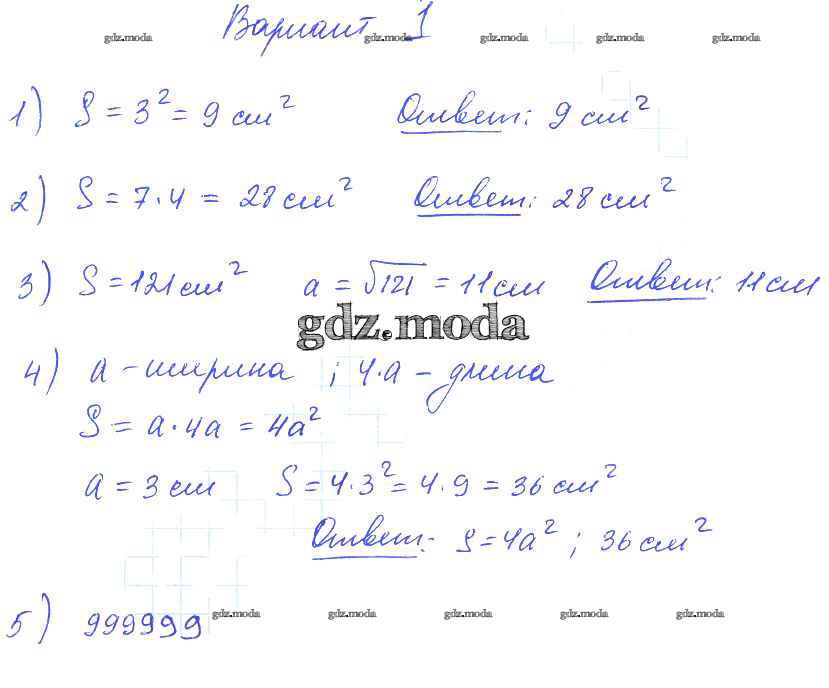 Вариант 1
gdz.moda gdz.moda gdz.moda gdz.moda gdz.moda
1) S = 3² = 9 см² Ответ: 9 см²
2) S = 7·4 = 28 см² Ответ: 28 см²
3) S = 121 см² a = √121 = 11 см Ответ: 11 см
gdz.moda
4) a - ширина ; 4·a - длина
S = a·4a = 4a²
a = 3 см S = 4·3² = 4·9 = 36 см²
Ответ: S = 4a² ; 36 см²
5) 999999
gdz.moda gdz.moda gdz.moda gdz.moda gdz.moda